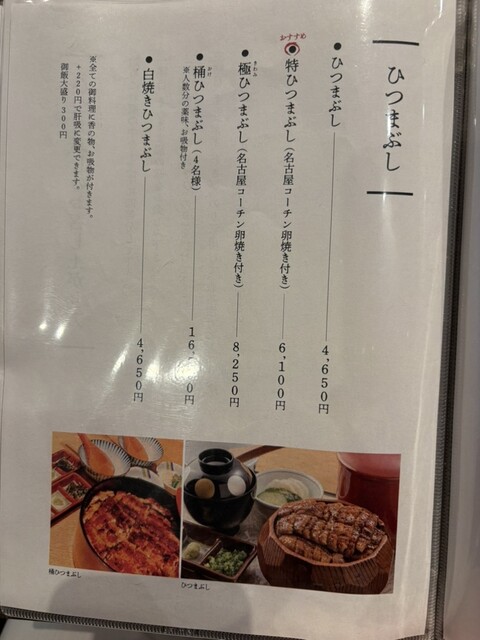 ひつまぶし
●ひつまぶし 4,650円
おすすめ
特ひつまぶし（名古屋コーチン卵焼き付き） 6,100円
きわみ
●極ひつまぶし（名古屋コーチン卵焼き付き） 8,250円
おけ
●桶ひつまぶし（4名様）
※人数分の薬味、お吸物付き
●白焼きひつまぶし 4,650円
※全ての御料理に香の物、お吸物が付きます。
+220円で肝吸に変更できます。
御飯大盛り300円
桶ひつまぶし
ひつまぶし